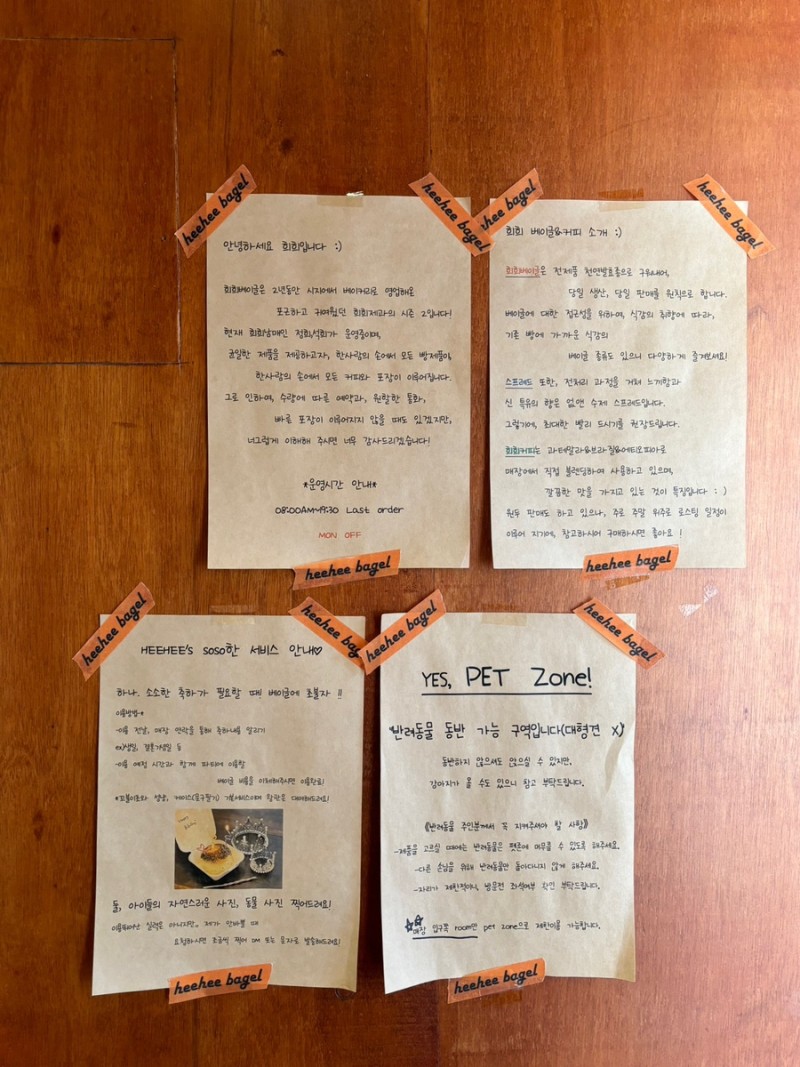 heehee bagel
heehee bagel
안녕하세요 희희입니다 :)
희희베이글은 2년동안 시지에서 베이커리로 영업해온
포근하고 귀여웠던 희희제과의 시즌 2입니다!
현재 희희남매인 정희,석희가 운영중이며,
균일한 제품을 제공하고자, 한사람의 손에서 모든 빵제품이,
한사람의 손에서 모든 커피와 포장이 이루어집니다.
그로 인하여, 수량에 따른 예약과, 원활한 통화,
빠른 포장이 이루어지지 않을 때도 있겠지만,
너그럽게 이해해 주시면 너무 감사드리겠습니다!
*운영시간 안내*
08:00AM~19:30 Last order
MON OFF
heehee bagel
heehee bagel
heehee bagel
희희 베이글&커피 소개 :)
희희베이글은 전제품 천연발효종으로 구워내어,
당일 생산, 당일 판매를 원칙으로 합니다.
베이글에 대한 접근성을 위하여, 식감의 취향에 따라,
기존 빵에 가까운 식감의
베이글 종류도 있으니 다양하게 즐겨보세요!
스프레드 또한, 전처리 과정을 거쳐 느끼함과
신 특유의 향은 없앤 수제 스프레드입니다.
그렇기에, 최대한 빨리 드시기를 권장드립니다.
희희커피는 과테말라&브라질&에티오피아로
매장에서 직접 블렌딩하여 사용하고 있으며,
깔끔한 맛을 가지고 있는 것이 특징입니다 : )
원두 판매도 하고 있으나, 주로 주말 위주로 로스팅 일정이
이루어 지기에, 참고하시어 구매하시면 좋아요 !
heehee bagel
heehee bagel
heehee bagel
HEEHEE's soso한 서비스 안내♡
하나. 소소한 축하가 필요할 때! 베이글에 초불자 !!
이용방법-*
-이용 전날, 매장 연락을 통해 축하내용 알리기
ex)생일, 결혼기념일 등
-이용 예정 시간과 함께 파티에 이용할
베이글 비용을 이체해주시면 이용완료!
둘, 아이들의 자연스러운 사진, 동물 사진 찍어드려요!
요청하시면 조금씩 찍어 DM 또는 문자로 발송해드려요!
heehee bagel
heehee bagel
heehee bagel
YES, PET Zone!
"반려동물 동반 가능 구역입니다(대형견 X)"
동반하지 않으셔도 앉으실 수 있지만,
강아지가 올 수도 있으니 참고 부탁드립니다.
《반려동물 주인분께서 꼭 지켜주셔야 할 사항》
-제품을 고르실 때에는 반려동물은 펫존에 머무를 수 있도록 해주세요.
-다른 손님을 위해 반려동물만 돌아다니지 않게 해주세요.
-자리가 제한적이니, 방문전 좌석여부 확인 부탁드립니다.
매장 입구쪽 room만 pet zone으로 제한이용 가능합니다.
heehee bagel